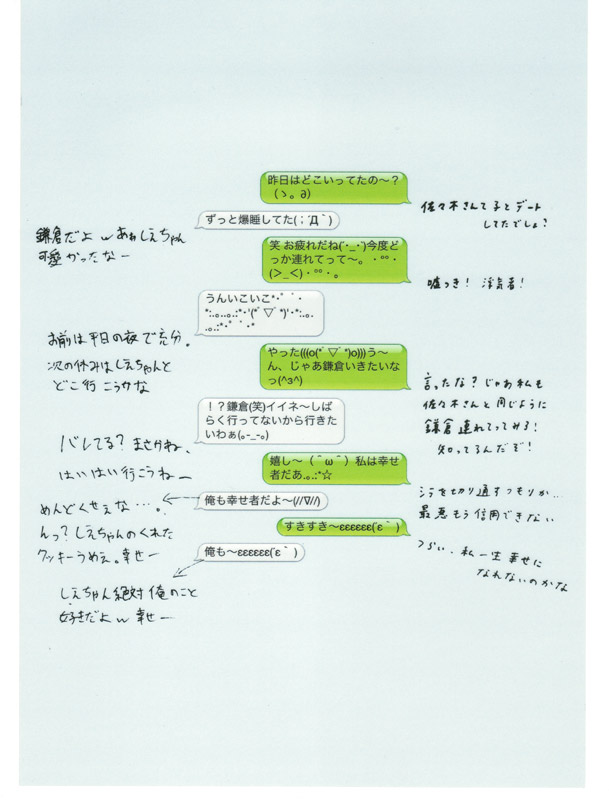 昨日はどこいってたの〜？
（ゝ。∂）
佐々木さんて子とデート
してたでしょ？
ずっと爆睡してた(；´Д｀)
鎌倉だよw あぁしえちゃん
可愛かったなー
笑 お疲れだね(´･_･`)今度ど
っか連れてって〜。・°°・
(＞_＜)・°°・。
嘘つき！ 浮気者！
うんいこいこ*･゜ﾟ･
*:.｡..｡.:*･'(*ﾟ▽ﾟ*)'･*:.｡.
.｡.:*･゜ﾟ･*
お前は平日の夜で充分。
次の休みはしえちゃんと
どこ行こうかな
やった(((o(*ﾟ▽ﾟ*)o)))う〜
ん、じゃあ鎌倉いきたいな
っ(^з^)
言ったな？じゃあ私も
佐々木さんと同じように
鎌倉連れてってみろ！
知ってるんだぞ！
！？鎌倉(笑)イイネ〜しば
らく行ってないから行きた
いわぁ(｡-_-｡)
バレてる？まさかね、
はいはい行こうねー
嬉し〜（＾ω＾）私は幸せ
者だあ.｡.:*☆
シラを切り通すつもりか…
最悪もう信用できない
俺も幸せ者だよ〜(//∇//)
めんどくせぇな…。
んっ？しえちゃんのくれた
クッキーうめぇ。幸せー
すきすき〜εεεεεε(´ε｀ )
つらい、私一生幸せに
なれないのかな
俺も〜εεεεεε(´ε｀ )
しえちゃん絶対俺のこと
好きだよw 幸せー